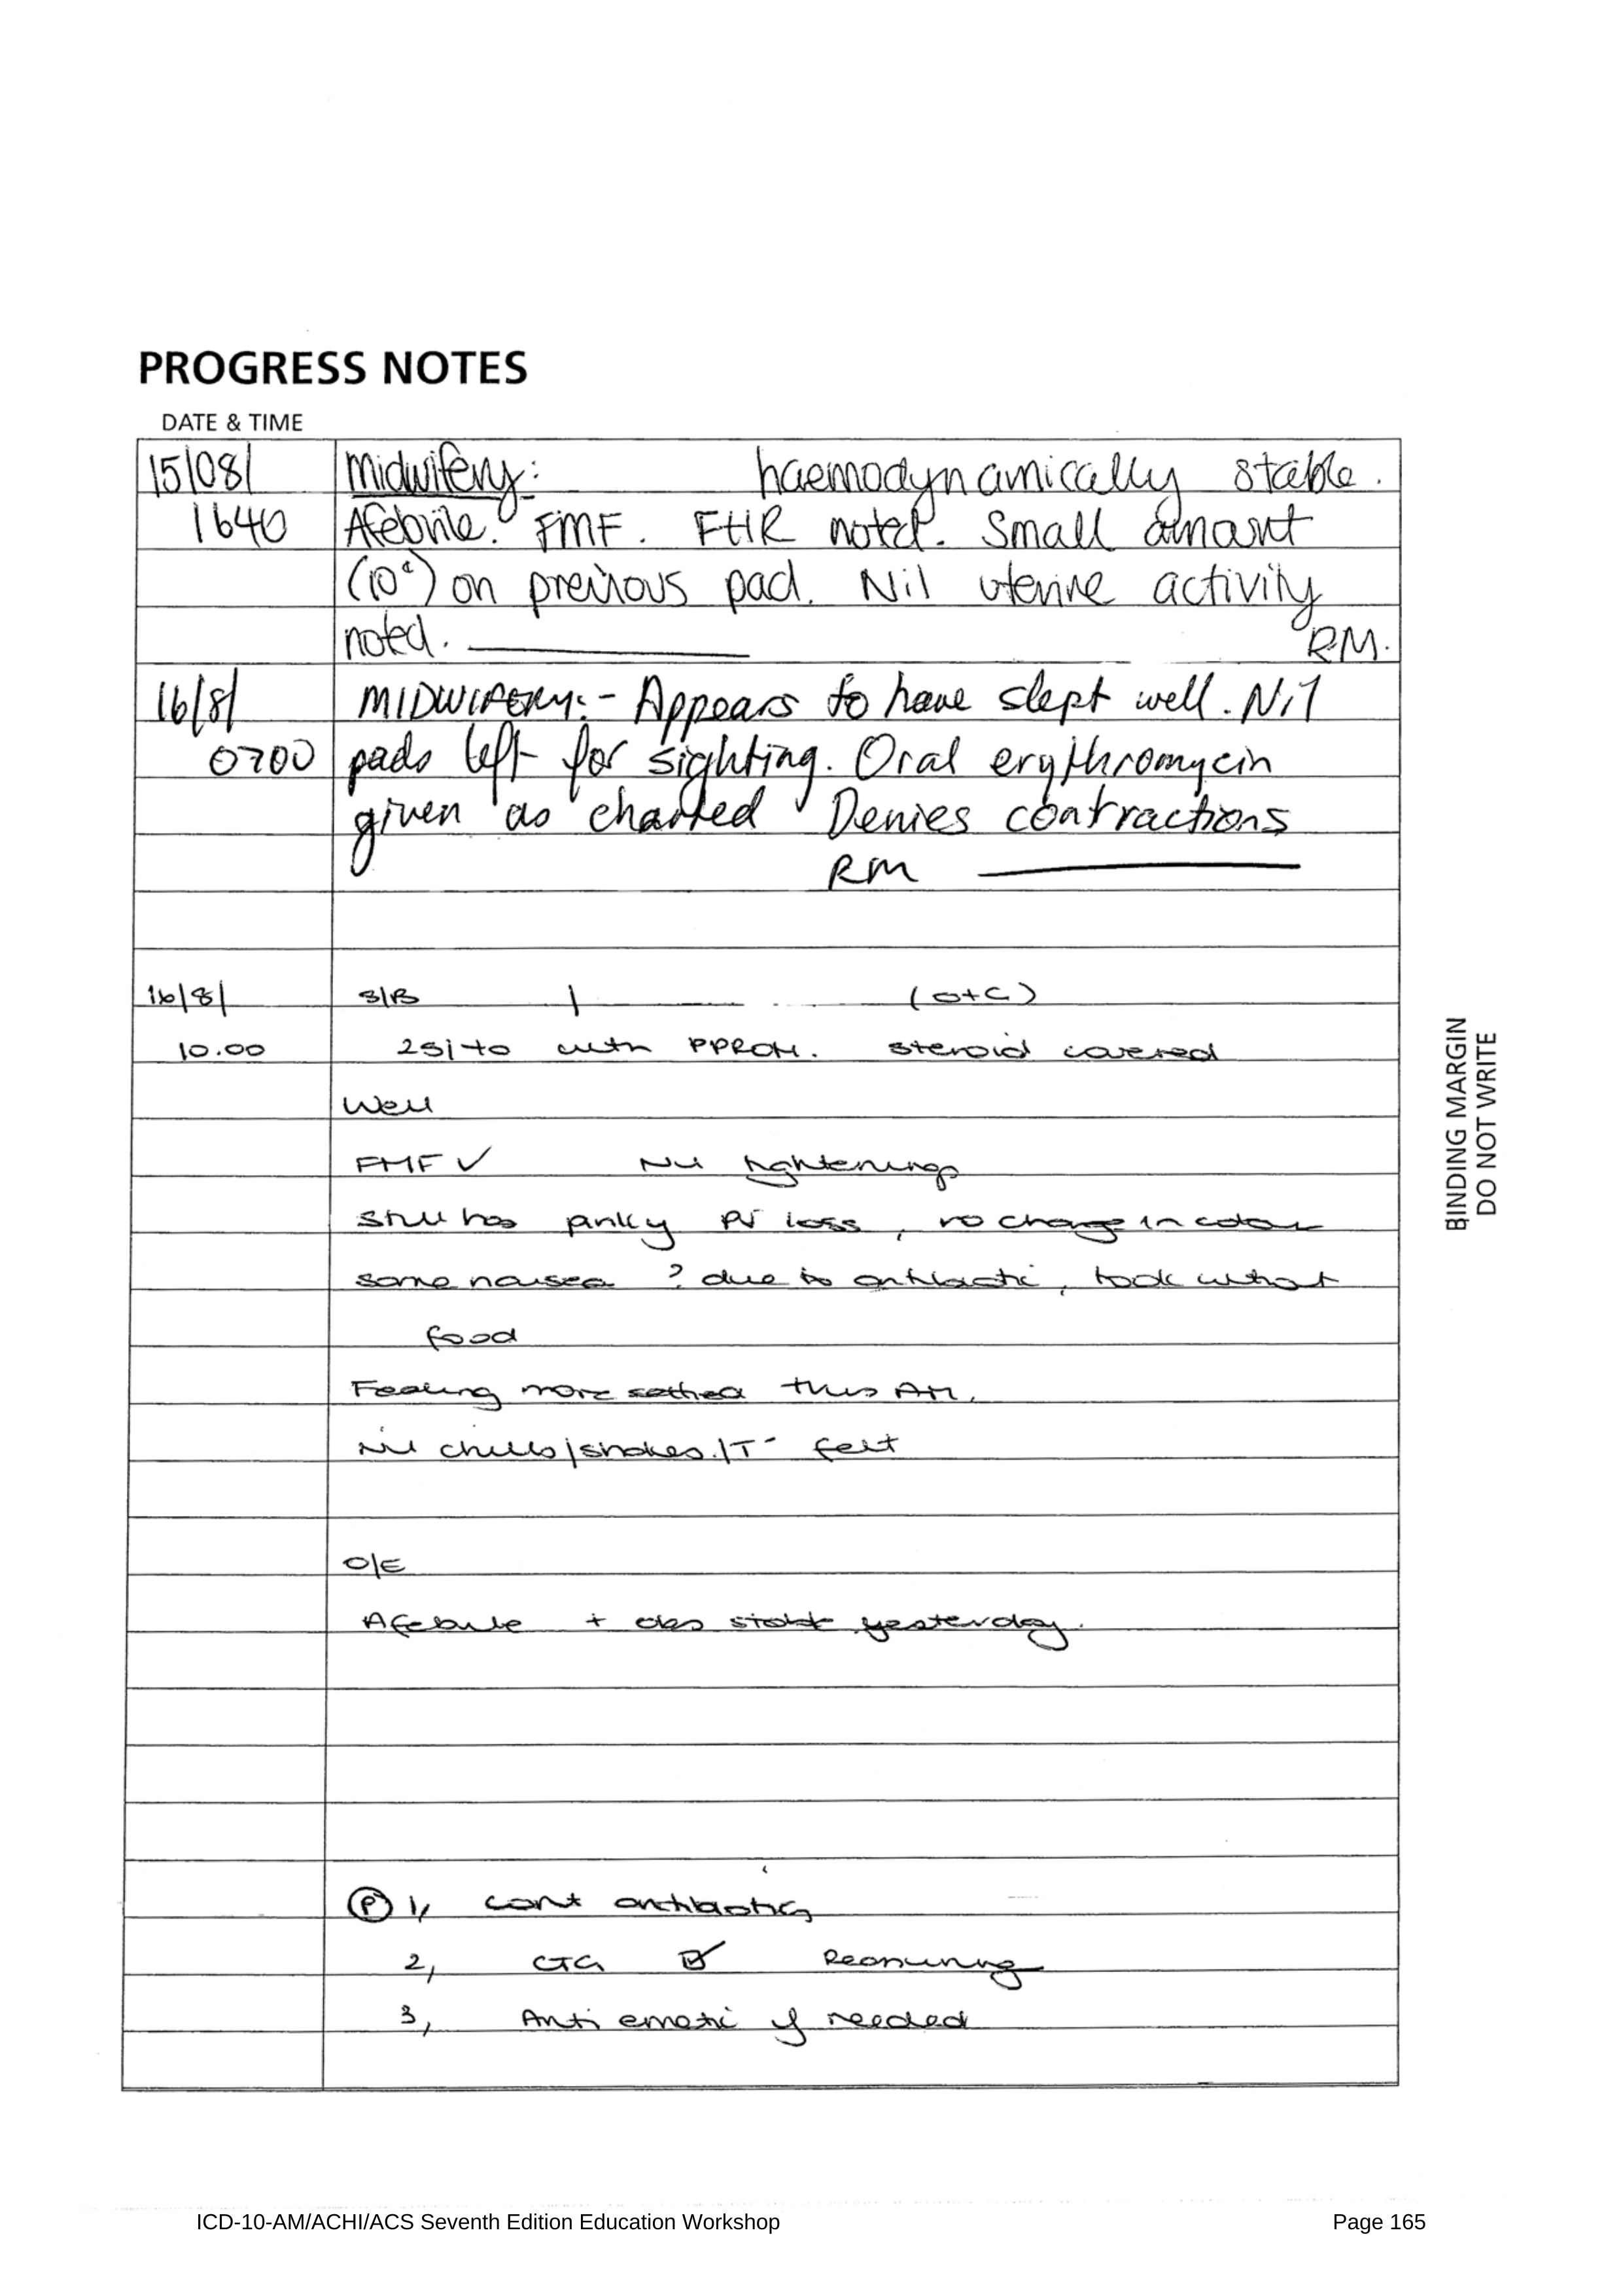 PROGRESS NOTES
DATE & TIME
15/08/ Midwifery: haemodynamically stable.
1640 Afebrile. FMF. FHR noted. Small amount
(10c) on previous pad. Nil uterine activity
noted. RM.
16/8/ MIDWIFERY:- Appears to have slept well. Nil
0700 pads left for sighting. Oral erythromycin
given as charted Denies contractions
RM
16/8/ S/B (O+G)
10.00 with PPROM. steroid covered
Well
FMF ✓ Nil tightenings
Still has pinky PV loss, no change in colour
some nausea ? due to antibiotic, took without
food
Feeling more settled this AM.
Nil chills/shakes/T felt
O/E
Afebrile + obs stable yesterday.
(P) 1, cont antibiotics
2, CTG ☑ Reassuring
3, Anti emetic if needed
BINDING MARGIN
DO NOT WRITE
ICD-10-AM/ACHI/ACS Seventh Edition Education Workshop Page 165